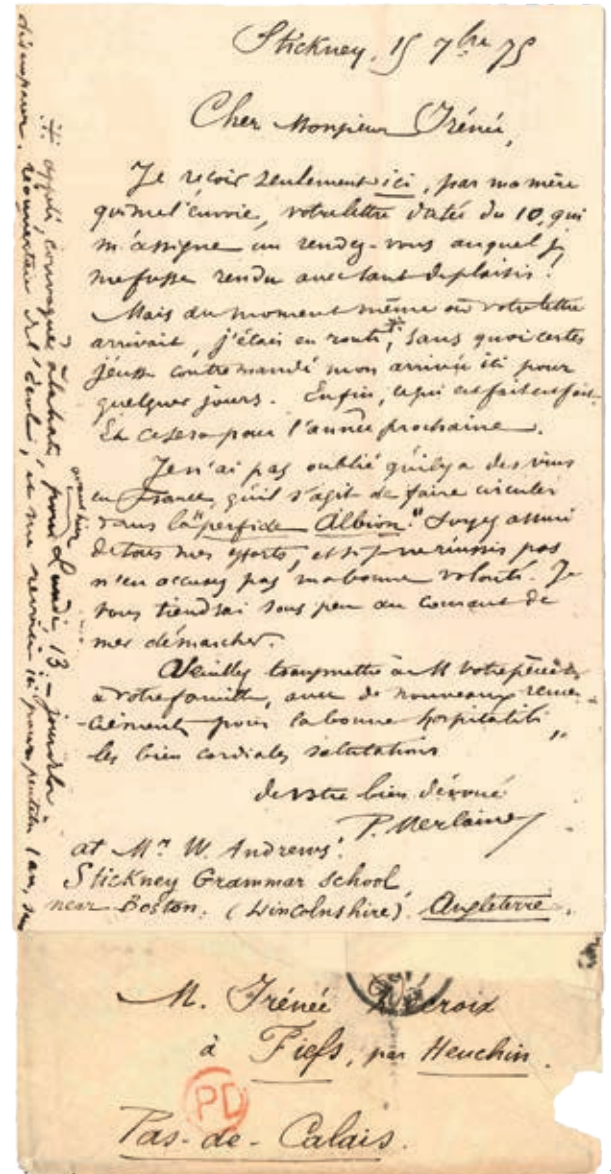 Stickney, 15 7bre 75
Cher Monsieur Irénée,
Je reçois seulement ici, par ma mère
qui me l'envoie, votre lettre datée du 10, qui
m'assigne un rendez-vous auquel je
me fusse rendu avec tant de plaisir !
Mais du moment même où votre lettre
arrivait, j'étais en route,* sans quoi certes
j'eusse contremandé mon arrivée ici pour
quelques jours. Enfin, ce qui est fait est fait.
Et ce sera pour l'année prochaine.
Je n'ai pas oublié qu'il y a des vins
en France, qu'il s'agit de faire circuler
dans la "perfide Albion". Soyez assuré
de tous mes efforts, et si je ne réussis pas
n'en accusez pas ma bonne volonté. Je
vous tiendrai sous peu au courant de
mes démarches.
Veuillez transmettre à M votre père et
à votre famille, avec de nouveaux remer-
-ciements pour la bonne hospitalité,
les bien cordiales salutations
de votre bien dévoué
P. Verlaine
at Mr W. Andrews'.
Stickney Grammar School,
near Boston. (Lincolnshire). Angleterre.
convoqué à la hâte, pour Lundi 13 - jour de la
avant hier
réouverture de l'école, et me revoici ici pour peut-être 1 an, sans
désemparer.
M. Irénée Decroix
à Fiefs, par Heuchin.
PD
Pas-de-Calais.